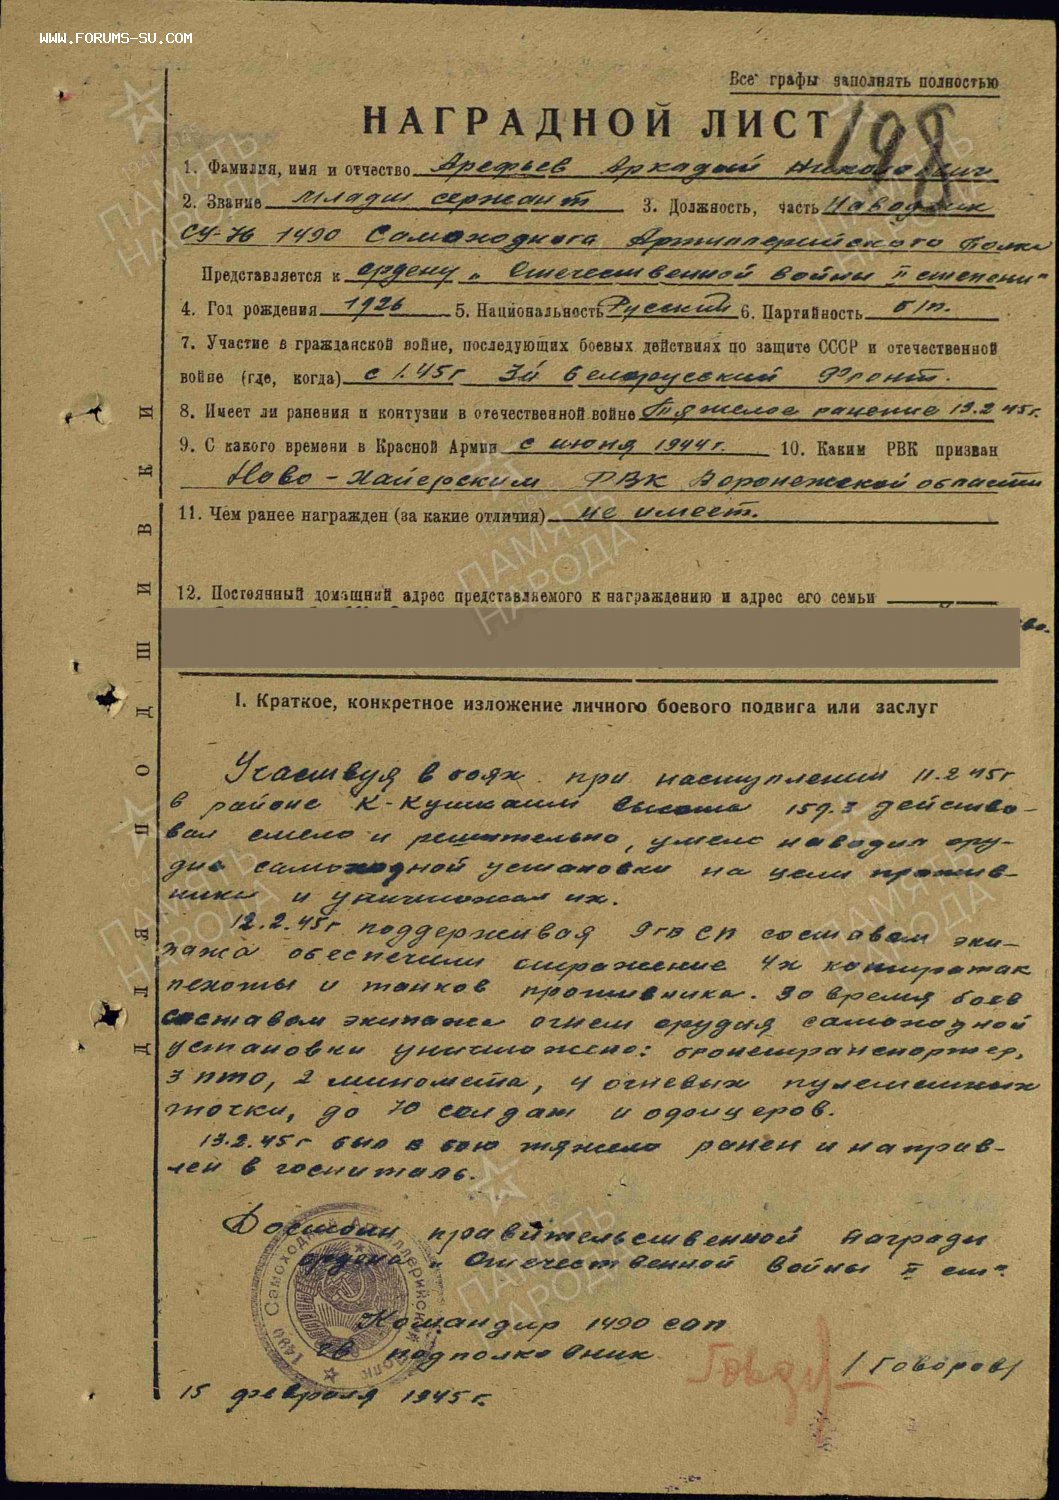 WWW.FORUMS-SU.COM
Все графы заполнять полностью
НАГРАДНОЙ ЛИСТ 198
1. Фамилия, имя и отчество Арефьев Аркадий Николаевич
2. Звание младш сержант 3. Должность, часть Наводчик
СУ-76 1490 Самоходного Артиллерийского Полка
Представляется к ордену „Отечественной войны II степени"
4. Год рождения 1926 5. Национальность Русский 6. Партийность б/п.
7. Участие в гражданской войне, последующих боевых действиях по защите СССР и отечественной
войне (где, когда) с 1.45г 3й Белорусский Фронт.
8. Имеет ли ранения и контузии в отечественной войне Тяжелое ранение 13.2.45г.
9. С какого времени в Красной Армии с июня 1944г. 10. Каким РВК призван
Ново-Хаперским РВК Воронежской области
11. Чем ранее награжден (за какие отличия) не имеет.
12. Постоянный домашний адрес представляемого к награждению и адрес его семьи
I. Краткое, конкретное изложение личного боевого подвига или заслуг
Участвуя в боях при наступлении 11.2.45г
в районе К-Кушкаим высота 159.3 действо-
вал смело и решительно, умело наводил ору-
дие самоходной установки на цели против-
ника и уничтожал их.
12.2.45г поддерживая 9гв СП составом эки-
пажа обеспечили отражение 4х контратак
пехоты и танков противника. Во время боев
составом экипажа огнем орудия самоходной
установки уничтожено: бронетранспортер,
3 ПТО, 2 миномета, 4 огневых пулеметных
точки, до 70 солдат и офицеров.
13.2.45г был в бою тяжело ранен и направ-
лен в госпиталь.
Достоин правительственной награды
ордена „Отечественной войны II ст"
Командир 1490 сап
гв подполковник /Говоров/
15 февраля 1945г.
1490 Самоходный Артиллерийский полк
ДЛЯ ПОДШИВКИ
ПАМЯТЬ НАРОДА
ПАМЯТЬ НАРОДА
ПАМЯТЬ НАРОДА
ПАМЯТЬ НАРОДА
ПАМЯТЬ НАРОДА
ПАМЯТЬ НАРОДА